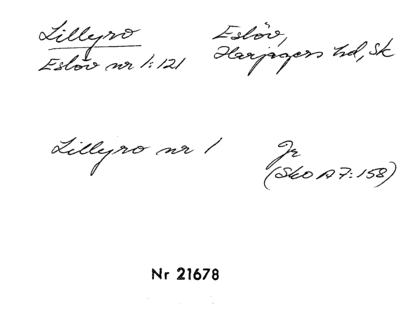 Lillyro Eslöv,
Eslöv nr 1:121 Harjagers hd, Sk
Lillyro nr 1 Jr
(SkO A7:158)
Nr 21678